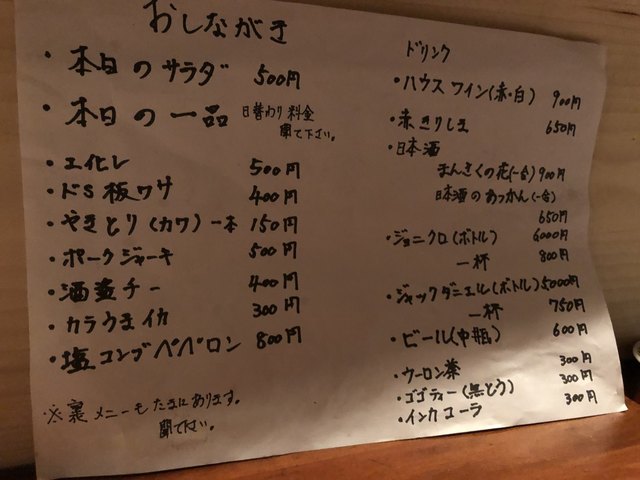 おしながき
・本日のサラダ 500円
・本日の一品 日替わり料金
聞て下さい。
・エイヒレ 500円
・ドS板ワサ 400円
・やきとり(カワ)一本 150円
・ポークジャーキ 500円
・酒盗チー 400円
・カラうまイカ 300円
・塩コンブペペロン 800円
※裏メニーもたまにあります。
聞て下さい。
ドリンク
・ハウスワイン(赤・白) 900円
・赤きりしま 650円
・日本酒
まんさくの花(一合) 900円
日本酒のあつかん(一合)
650円
・ジョニクロ(ボトル) 6000円
一杯 800円
・ジャックダニエル(ボトル) 5000円
一杯 750円
・ビール(中瓶) 600円
・ウーロン茶 300円
・ゴゴティー(無とう) 300円
・インカコーラ 300円